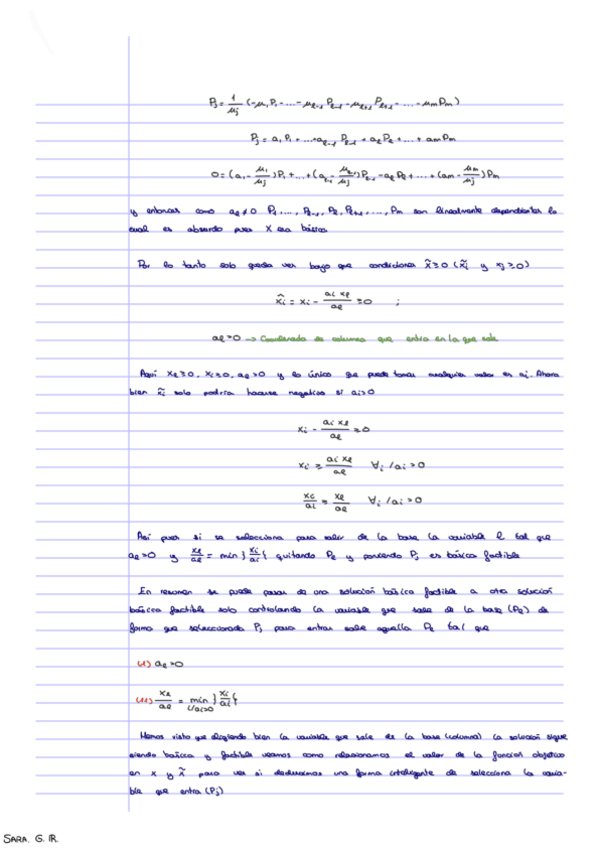 Pj = 1/μj (-μ1P1 - ... - μℓ-1 Pℓ-1 - μℓ+1 Pℓ+1 - ... - μmPm)
Pj = a1P1 + ... + aℓ-1 Pℓ-1 + aℓPℓ + ... + amPm
0 = (a1 - μ1/μj)P1 + ... + (aℓ-1 - μℓ-1/μj)Pℓ-1 - aℓPℓ + ... + (am - μm/μj)Pm
y entonces como aℓ≠0 P1, ..., Pℓ-1, Pℓ, Pℓ+1, ..., Pm son linealmente dependientes lo
cual es absurdo pues X era básica
Por lo tanto solo queda ver bajo que condiciones x̃≥0 (x̃i y xj≥0)
x̃i = xi - ai xℓ/aℓ ≥ 0 ;
aℓ>0 → Coordenada de columna que entra en la que sale
Aquí xℓ≥0, xi≥0, aℓ>0 y lo único que puede tomar cualquier valor es ai. Ahora
bien x̃i solo podría hacerse negativo si ai>0
xi - ai xℓ/aℓ ≥ 0
xi ≥ ai xℓ/aℓ ∀i /ai>0
xi/ai ≥ xℓ/aℓ ∀i /ai>0
Así pues si se selecciona para salir de la base la variable ℓ tal que
aℓ>0 y xℓ/aℓ = min }xi/ai{ quitando Pℓ y poniendo Pj es básica factible
En resumen se puede pasar de una solución básica factible a otra solución
básica factible solo controlando la variable que sale de la base (Pℓ) de
forma que seleccionada Pj para entrar sale aquella Pℓ tal que
(i) aℓ>0
(ii) xℓ/aℓ = min i/ai>0 }xi/ai{
Hemos visto que eligiendo bien la variable que sale de la base (columna) la solución sigue
siendo básica y factible veamos como relacionamos el valor de la función objetivo
en x y x̃ para ver si deducimos una forma inteligente de selecciona la varia-
ble que entra (Pj)
SARA. G. R.